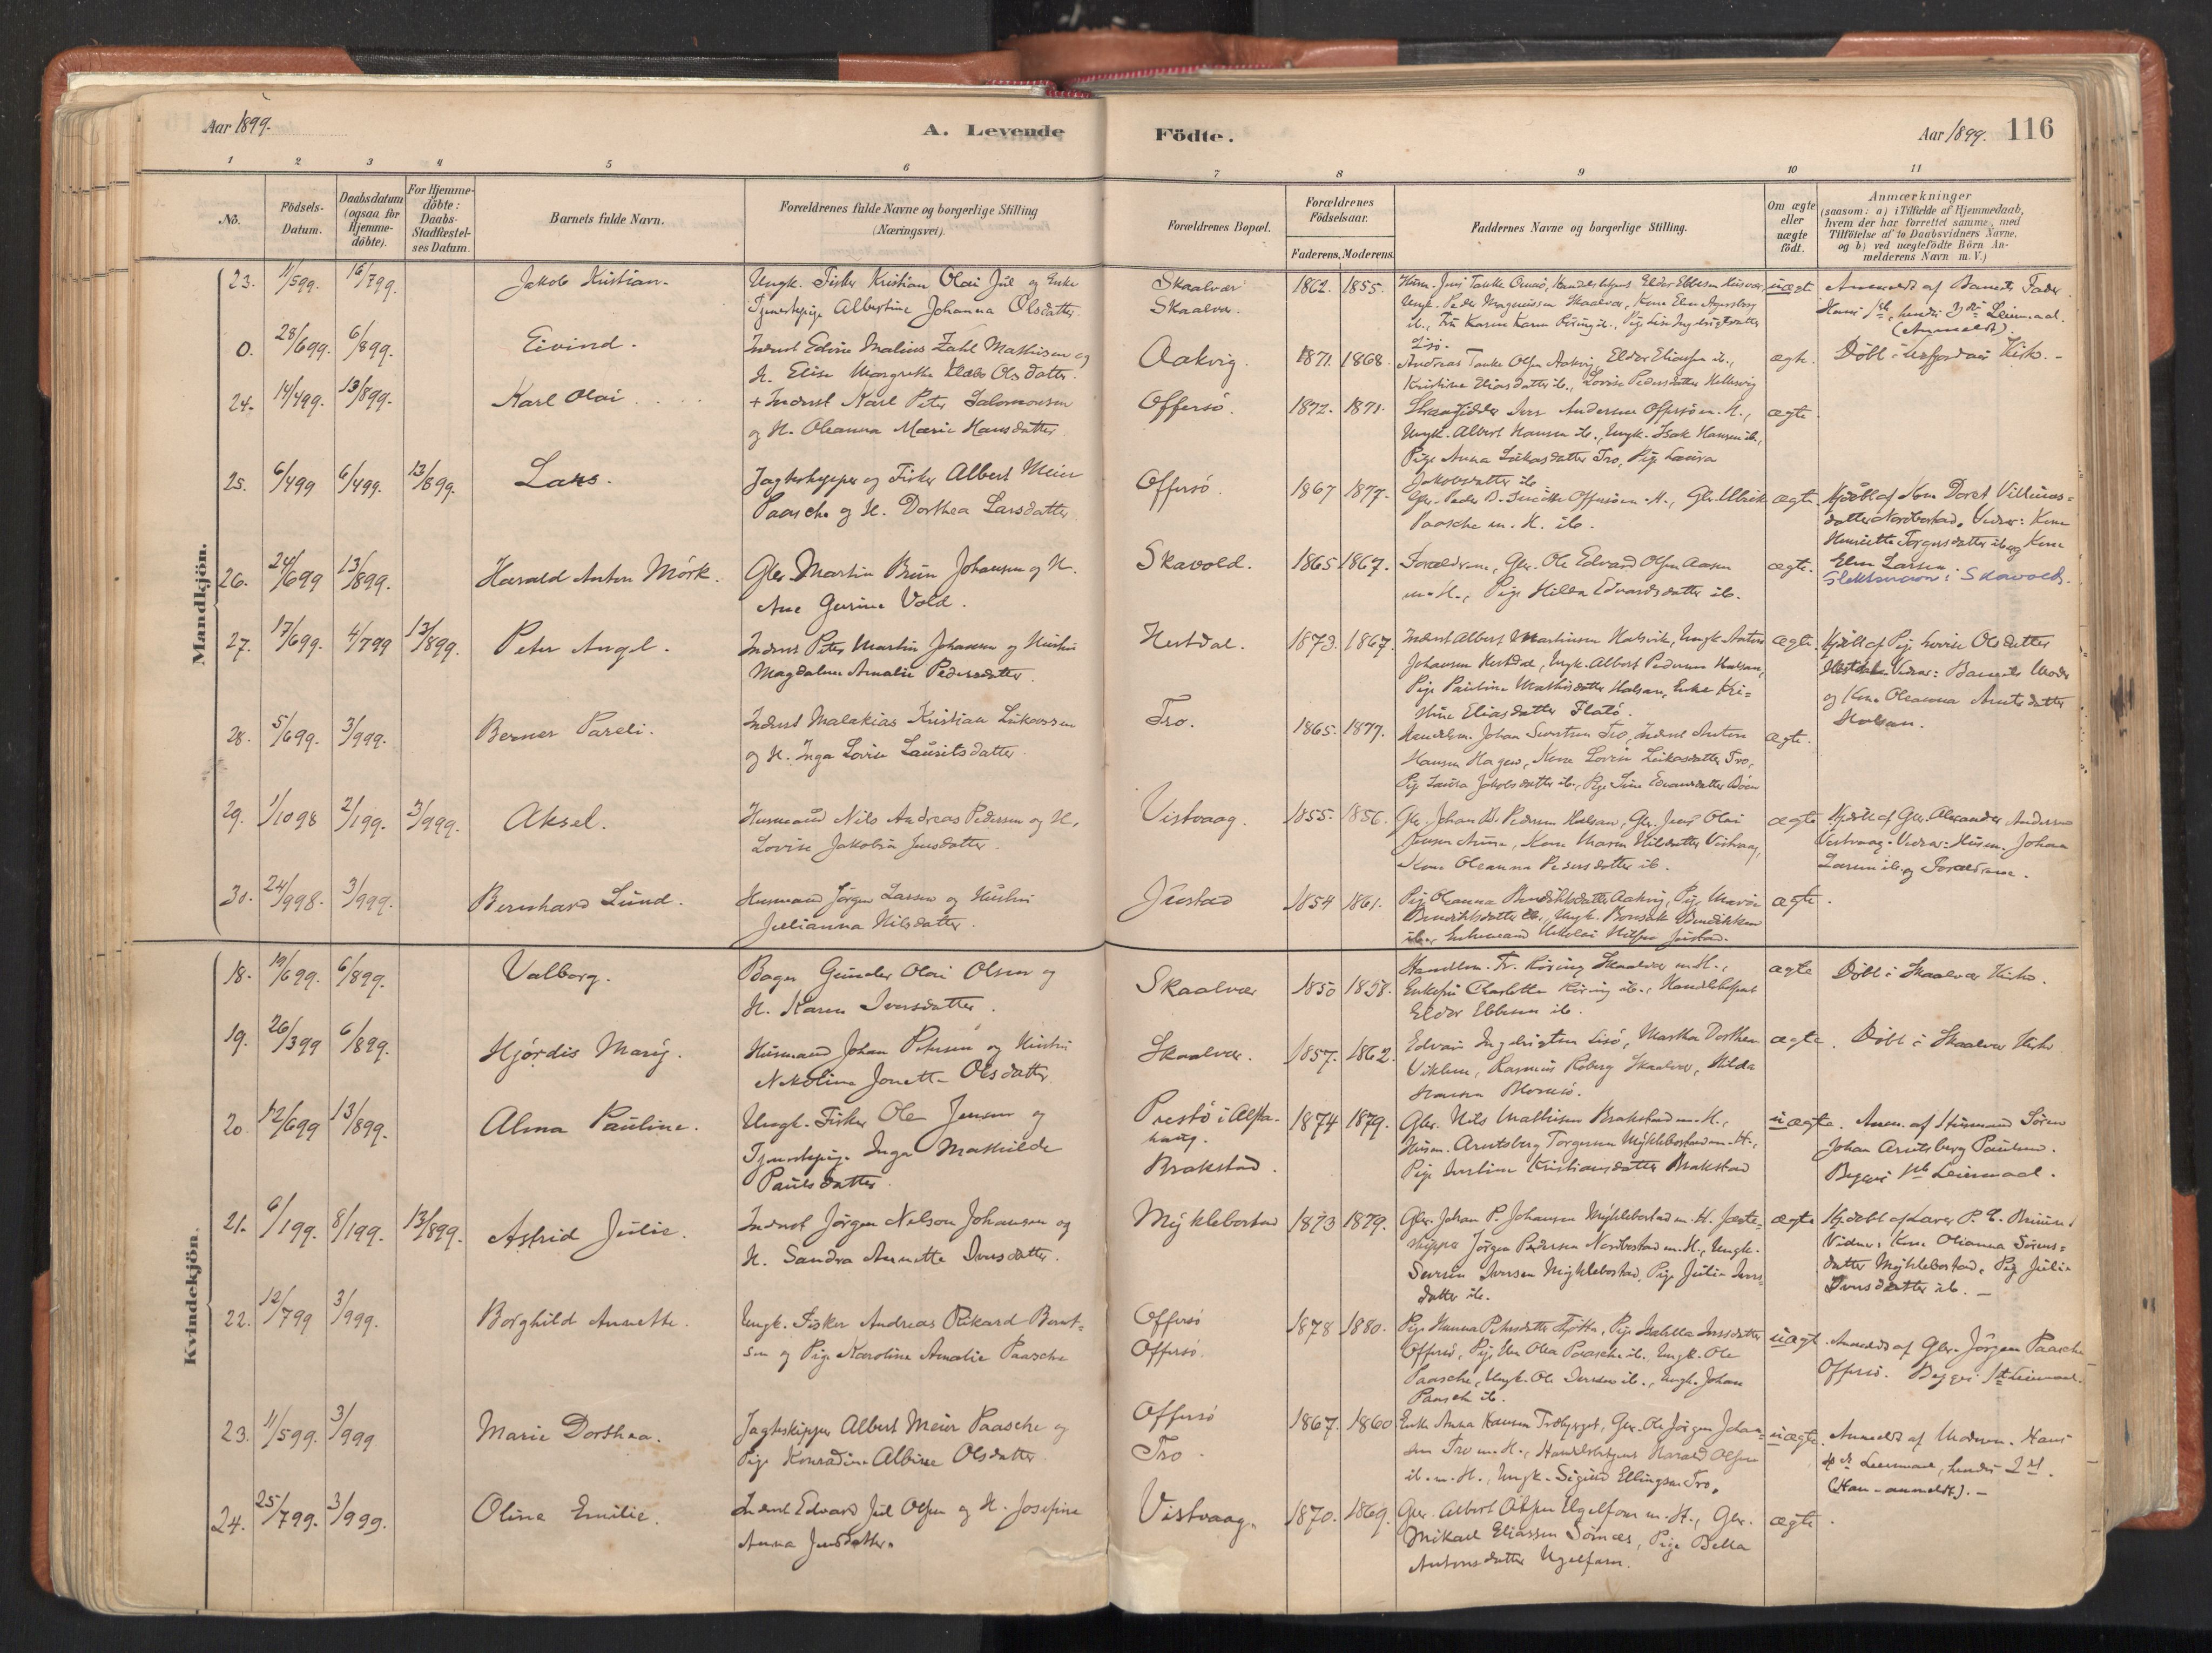 Aar 1899.
A. Levende
Födte.
Aar 1899.
116
1 2 3 4 5 6 7 8 9 10 11
No.
Födsels-
Datum.
Daabsdatum
(ogsaa för
Hjemme-
döbte).
For Hjemme-
döbte:
Daabs-
Stadfæstel-
ses Datum.
Barnets fulde Navn.
Forældrenes fulde Navne og borgerlige Stilling
(Næringsvei).
Forældrenes Bopæl.
Forældrenes
Födselsaar.
Faderens. Moderens.
Faddernes Navne og borgerlige Stilling.
Om ægte
eller
uægte
födt.
Anmærkninger
(saasom: a) i Tilfælde af Hjemmedaab,
hvem der har forrettet samme, med
Tilföielse af to Daabsvidners Navne,
og b) ved uægtefödte Börn An-
melderens Navn m. V.)
Mandkjön.
23. 11/599. 16/799. Jakob Kristian.
Ungk. Fisker Kristian Olai Jul og Enke
Tjenestepige Albertine Johanna Olsdatter.
Skaalvær
Skaalvær.
1862. 1855.
uægt
Anmeldt af Barnets Fader
Hans 1ste, hendes 3die Leiermaal.
(Anmeldt).
0. 28/699. 6/899. Eivind.
Inderst Edvin Malius Zahl Mathisen og
H. Elise Margrethe Klæbo Olsdatter.
Aakvig. 1871. 1868.
Lisö.
Andreas Tanke Olsen Aakvig, Eldor Eliasen ib.,
Kristine Eliasdatter ib., Lovise Pedersdatter Hellesvig
ægte.
24. 14/499. 13/899. Karl Olai
+ Inderst Karl Peter Salomonsen
og H. Oleanna Marie Hansdatter
Offersö. 1872. 1871.
Iver Andersen Offersö m. H.,
Ungk. Albert Hansen ib., Ungk. Isak Hansen ib.,
Pige Anna Lukasdatter Tro, Pige Laura
Jakobsdatter ib
ægte.
25. 6/499 6/499. 13/899. Lars.
Jagteskipper og Fisker Albert Meier
Paasche og H. Dorthea Larsdatter.
Offersö. 1867 1877.
Gbr. Peder B. Offersöen m. H., Gbr. Ulrik
Paasche m. H. ib.
ægte.
Hjdöbt af Kone Doret Villums-
datter Nordbostad. Vidner: Kone
Henriette Torgersdatter ib og Kone
Elen Larsen.
26. 24/699 13/899. Harald Anton Mörk.
Gbr. Martin Brun Johansen og H.
Ane Gurine Vold.
Skavold. 1865 1867.
Forældrene, Gbr. Ole Edvard Olsen Aasen
m. H., Pige Hilda Edvardsdatter ib.
ægte.
Slektsnavn: Skavold.
27. 17/699. 4/799 13/899. Peter Angel.
Inderst Peter Martin Johansen og Hustru
Magdalene Amalie Pedersdatter.
Hestdal. 1873. 1867.
Inderst Albert Martinsen Halsvik, Ungk. Anton
Johansen Hestdal, Ungk. Albert Pedersen Halsan,
Pige Pauline Mathisdatter Halsan, Enke Kri-
stine Eliasdatter Flatö.
ægte.
Hjdöbt af Pige Lovise Olsdatter
Hestdal. Vidner: Barnets Moder
og Kone Oleanna Arntsdatter
Halsan.
28. 5/699. 3/999. Berner Pareli.
Inderst Malakias Kristian Lukassen
og H. Inga Lovise Lauritsdatter.
Tro. 1865. 1877.
Handelsm. Johan Sivertsen Tro, Inderst Anton
Hansen Hagen, Kone Lovise Lukasdatter Tro,
Pige Laura Jakobsdatter ib.,
ægte.
29. 1/1098 2/199. 3/999. Aksel.
Husmand Nils Andreas Pedersen og H.
Lovise Jakobine Jensdatter.
Vistvaag. 1855. 1856.
Gbr. Johan B. Pedersen Halsan, Gbr. Jens Olai
Jensen, Kone Maren Nilsdatter Vistvaag,
Kone Oleanna Pedersdatter ib.
ægte
Hjdöbt af Gbr. Alexander Andersen
Vistvaag. Vidner: Husm. Johan
Larsen ib. og Forældrene.
30. 24/998. 3/999. Bernhard Lund.
Husmand Jörgen Larsen og Hustru
Julianna Nilsdatter.
Justad 1854 1861.
Pige Oleanna Bendiktsdatter Aakvig, Pige
Bendiktsdatter ib., Ungk. Bendiktsen
ib., Nikolai Nilsen Justad.
ægte.
Kvindekjön.
18. 19/699. 6/899. Valborg.
Bager Gunder Olai Olsen og
H. Karen Iversdatter.
Skaalvær 1850 1858.
Handlm. Fr. Röring Skaalvær m. H.,
Enkefru Charlotte Röring ib., Handelsbetjent
Eldor Ebbesen ib.
ægte Döbt i Skaalvær Kirke.
19. 26/399 6/899. Hjördis Marÿ.
Husmand Johan Petersen og Hustru
Nikoline Jonette Olsdatter
Skaalvær. 1857. 1862.
Edvin Ingebrigtsen Lisö, Martha Dorthea
Viklem, Rasmus Roberg Skaalvær, Hilda
Hansen
ægte. Döbt i Skaalvær Kirke
20 12/699 13/899. Alma Pauline.
Ungk. Fisker Ole Jensen og
Tjenestepige Inga Mathilde
Paulsdatter.
Prestö i Alsta-
haug.
Brakstad.
1874 1879.
Gbr. Nils Mathisen Brakstad m. H.,
Husm. Arntsberg Torgersen Mÿklebostad m. H.,
Pige Iverline Kristiansdatter Brakstad
uægte. Anm. af Husmand Sören
Johan Arntsberg Paulsen.
Begges 1ste Leiermaal.
21. 6/199. 8/199. 13/899. Astrid Julie.
Inderst Jörgen Nelson Johansen og
H. Sandra Annette Iversdatter.
Mÿklebostad 1873 1879.
Gbr. Johan P. Johansen Mÿklebostad m. H. Jægte-
skipper Jörgen Pedersen Nordbostad m. H., Ungk.
Severin Iversen Mÿklebostad, Pige Julie Ivers-
datter ib.
ægte Hjdöbt af Lærer P. E.
Vidner: Kone Olianna Sörens-
datter Mÿklebostad, Pige Julie
Iversdatter ib. —
22. 12/799 3/999. Borghild Annette.
Ungk. Fisker Andreas Rikard Bernt-
sen og Pige Karoline Amalie Paasche
Offersö
Offersö.
1878 1880.
Pige Hanna Petersdatter Tjötta, Pige Isabella Iversdatter
Offersö, Pige Paasche ib. Ungk. Ole
Paasche, Ungk. Ole Iversen ib., Ungk. Johan
Paasche ib.
uægt. Anmeldt af Gbr. Jörgen Paasche
Offersö. Begges 1ste Leiermaal.
23. 11/599. 3/999 Marie Dorthea.
Jagteskipper Albert Meier Paasche og
Pige Konradine Albine Olsdatter.
Offersö
Tro.
1867. 1860
Enke Anna Hansen, Gbr. Ole Jörgen Johan-
sen Tro m. H., Handelsbetjent Harald Olsen
ib. m. H., Ungk. Sigurd Ellingsen Tro.
uægte. Anmeldt af Moderen. Hans
4de Leiermaal, hendes 2det.
(Han - anmeldt). —
24. 25/799. 3/999. Oline Emilie.
Inderst Edvard Jul Olsen og H. Josefine
Anna Jensdatter.
Vistvaag. 1870. 1869.
Gbr. Albert Olsen Ugelfarn m. H., Gbr.
Mikael Eliassen Sömnes, Pige Bella
Antonsdatter Ugelfarn.
ægte.